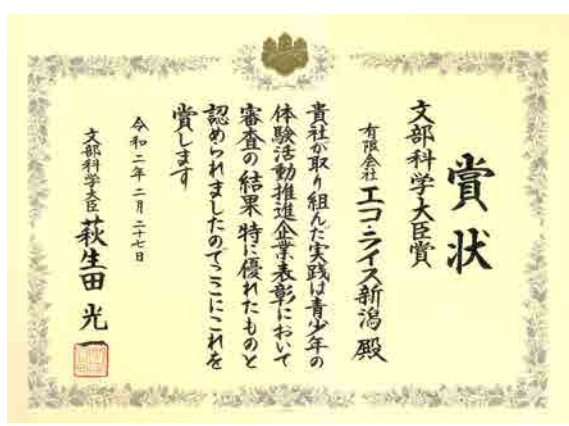 賞状
文部科学大臣賞
有限会社 エコ・ライス新潟 殿
貴社が取り組んだ実践は青少年の
体験活動推進企業表彰において
審査の結果特に優れたものと
認められましたのでここにこれを
賞します
令和二年二月二十七日
文部科学大臣 萩生田 光一